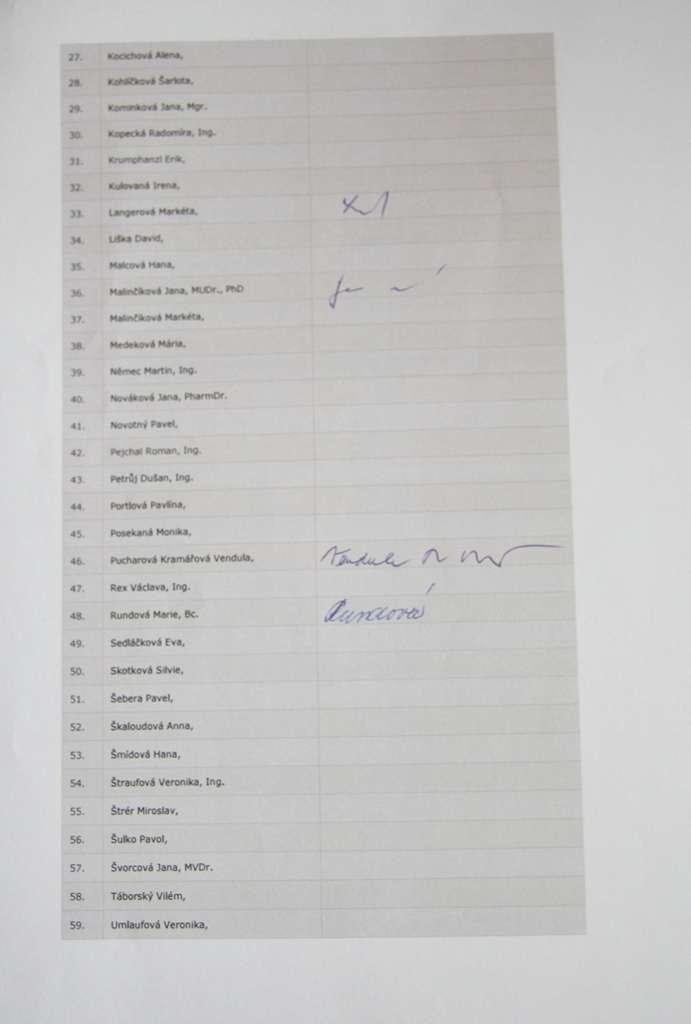 27. Kocichová Alena,
28. Kohlíčková Šarlota,
29. Kominková Jana, Mgr.
30. Kopecká Radomíra, Ing.
31. Krumphanzl Erik,
32. Kulovaná Irena,
33. Langerová Markéta,
34. Liška David,
35. Malcová Hana,
36. Malinčíková Jana, MUDr., PhD
37. Malinčíková Markéta,
38. Medeková Mária,
39. Němec Martin, Ing.
40. Nováková Jana, PharmDr.
41. Novotný Pavel,
42. Pejchal Roman, Ing.
43. Petrůj Dušan, Ing.
44. Portlová Pavlína,
45. Posekaná Monika,
46. Pucharová Kramářová Vendula, Vendula
47. Rex Václava, Ing.
48. Rundová Marie, Bc. Rundová
49. Sedláčková Eva,
50. Skotková Silvie,
51. Šebera Pavel,
52. Škaloudová Anna,
53. Šmídová Hana,
54. Štraufová Veronika, Ing.
55. Štrér Miroslav,
56. Šulko Pavol,
57. Švorcová Jana, MVDr.
58. Táborský Vilém,
59. Umlaufová Veronika,